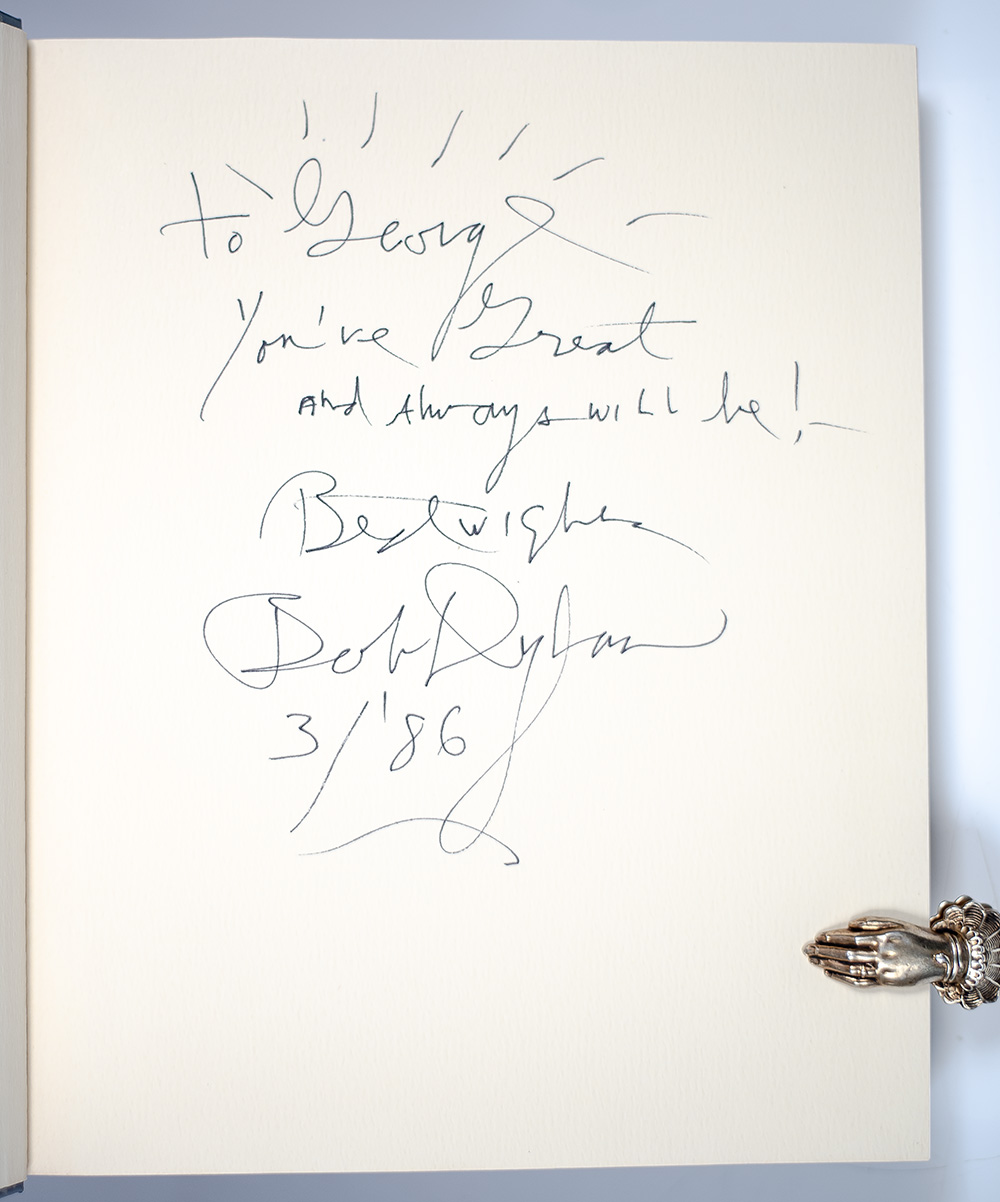 to George –
You've Great
and Always will be! –
Best wishes
Bob Dylan
3/'86